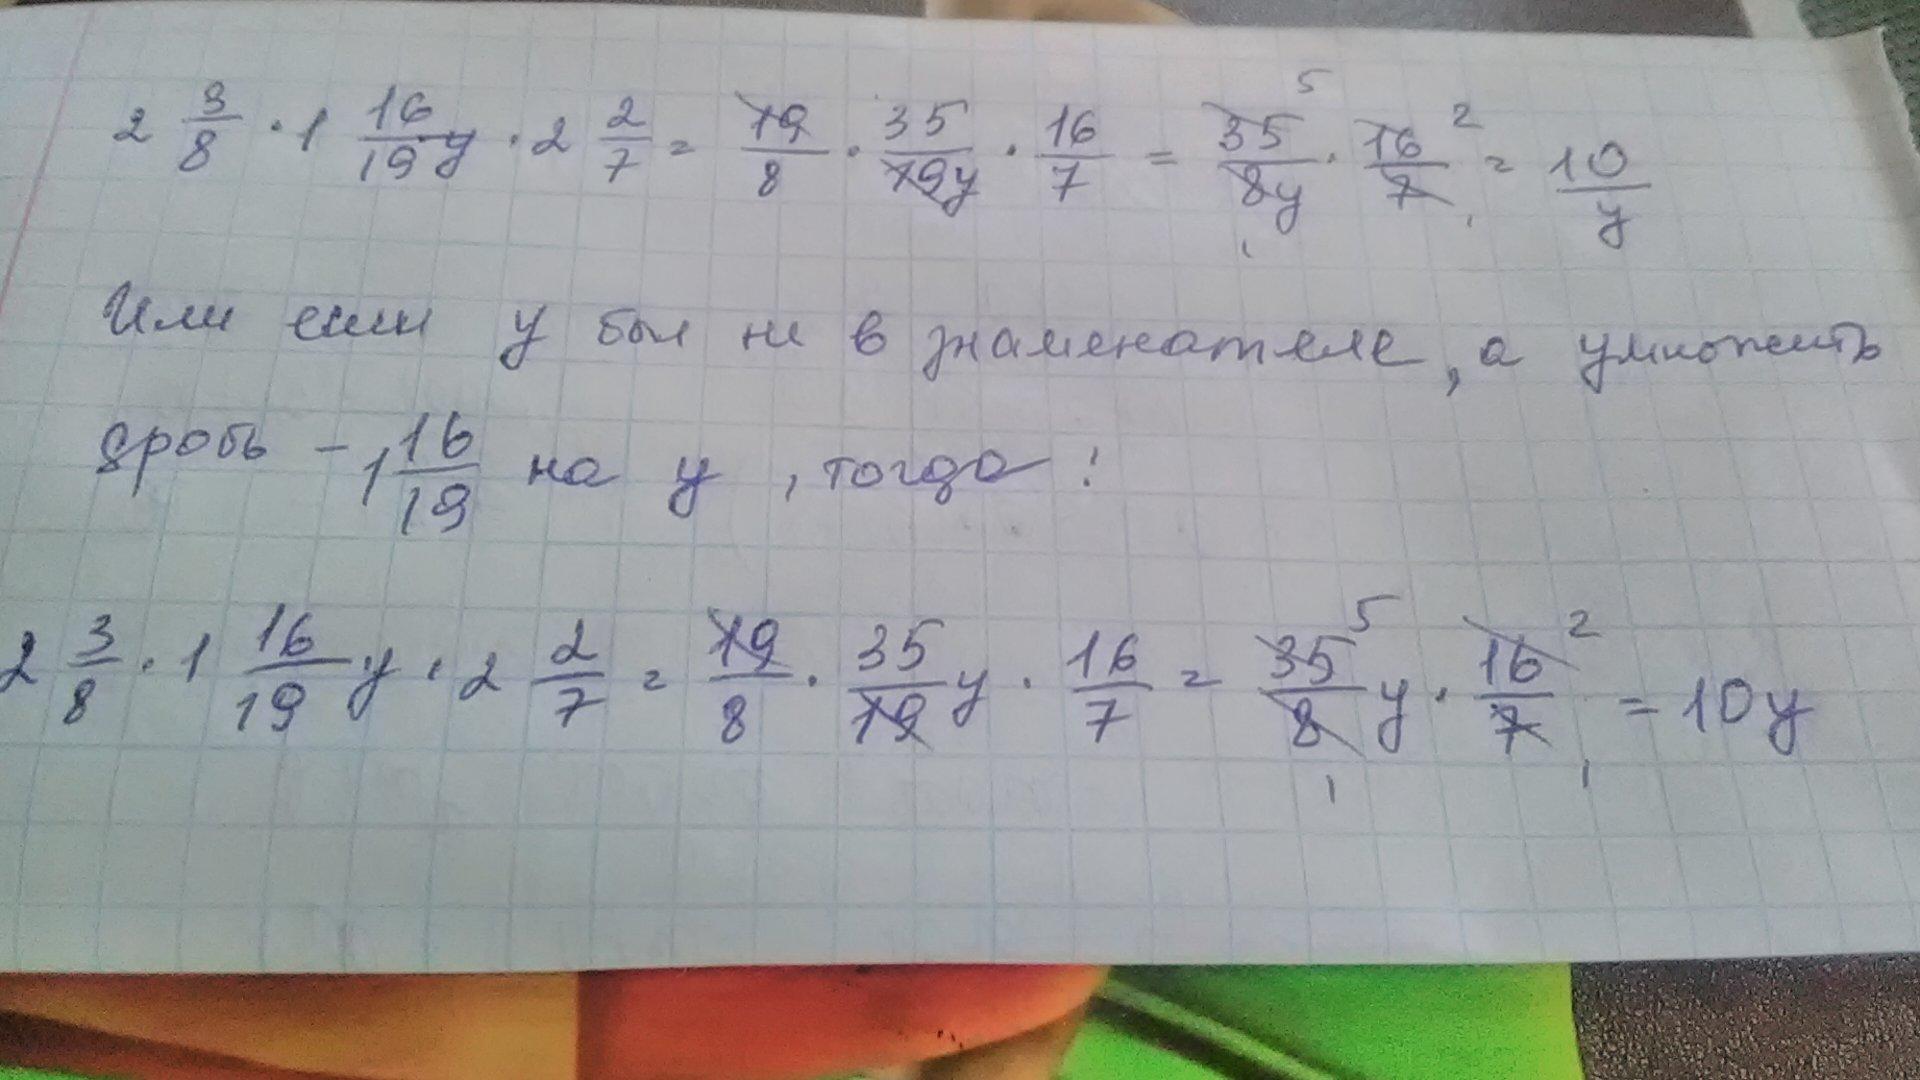 2 3/8 · 1 16/19y · 2 2/7 = 19/8 · 35/19y · 16/7 = 35/8y 5 1 · 16/7 2 1 = 10/y
Или если y был не в знаменателе, а умножить
дробь - 1 16/19 на y, тогда:
2 3/8 · 1 16/19 y · 2 2/7 = 19/8 · 35/19 y · 16/7 = 35/8 5 1 y · 16/7 2 1 = 10y